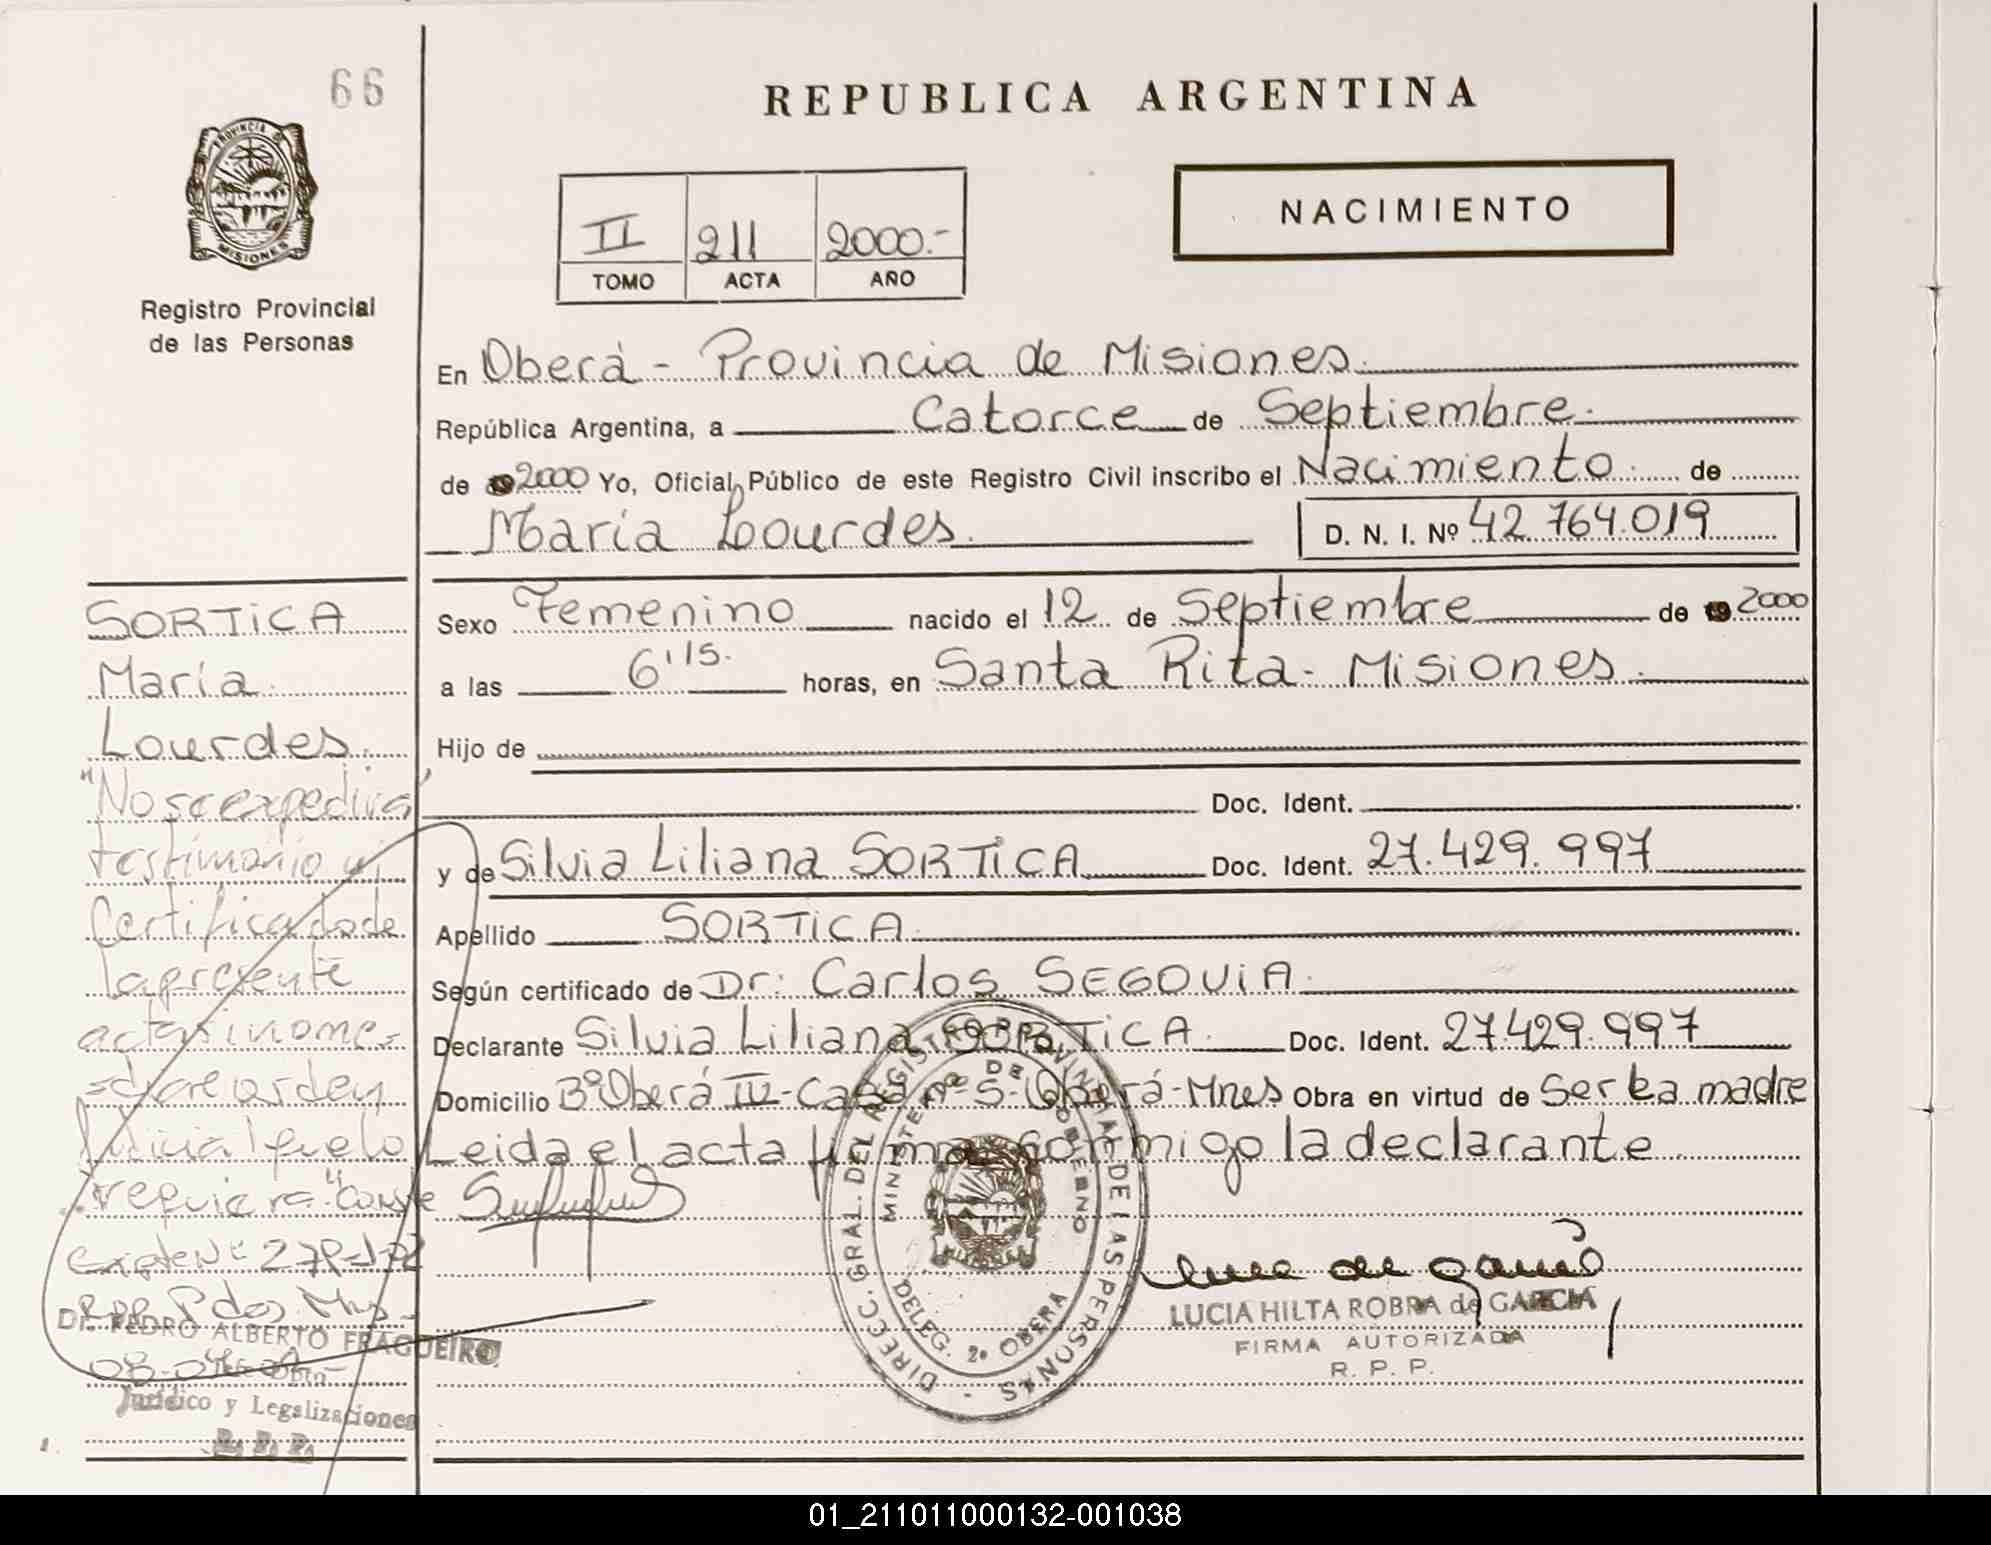 66
REPUBLICA ARGENTINA
PROVINCIA DE
MISIONES
Registro Provincial
de las Personas
II 211 2000.-
TOMO ACTA AÑO
NACIMIENTO
En Oberá - Provincia de Misiones.
República Argentina, a Catorce de Septiembre.
de 2000 Yo, Oficial Público de este Registro Civil inscribo el Nacimiento de
María Lourdes. D. N. I. Nº 42.764.019
SORTICA
María
Lourdes.
"No se expedira
testimonio y
Certificado de
la presente
acta si no me-
dia orden
Judicial que lo
requiera" Conste
Sexo Femenino nacido el 12 de Septiembre de 19 2000
a las 6'15. horas, en Santa Rita - Misiones.
Hijo de
Doc. Ident.
y de Silvia Liliana SORTICA Doc. Ident. 27.429.997
Apellido SORTICA
Según certificado de Dr: Carlos SEGOVIA.
Declarante Silvia Liliana SORTICA. Doc. Ident. 27.429.997
Domicilio Bº Oberá IV - Casa nº 5 - Oberá - Mnes Obra en virtud de Ser la madre
Leida el acta firma conmigo la declarante
DIRECC. GRAL. DEL REGISTRO PROVINCIAL DE LAS PERSONAS
MINISTERIO DE GOBIERNO
DELEG. 2º OBERA
LUCIA HILTA ROBRA de GARCIA
FIRMA AUTORIZADA
R. P. P.
Dr. PEDRO ALBERTO FRAGUEIRO
Jurídico y Legalizaciones
R. P. P.
01_211011000132-001038